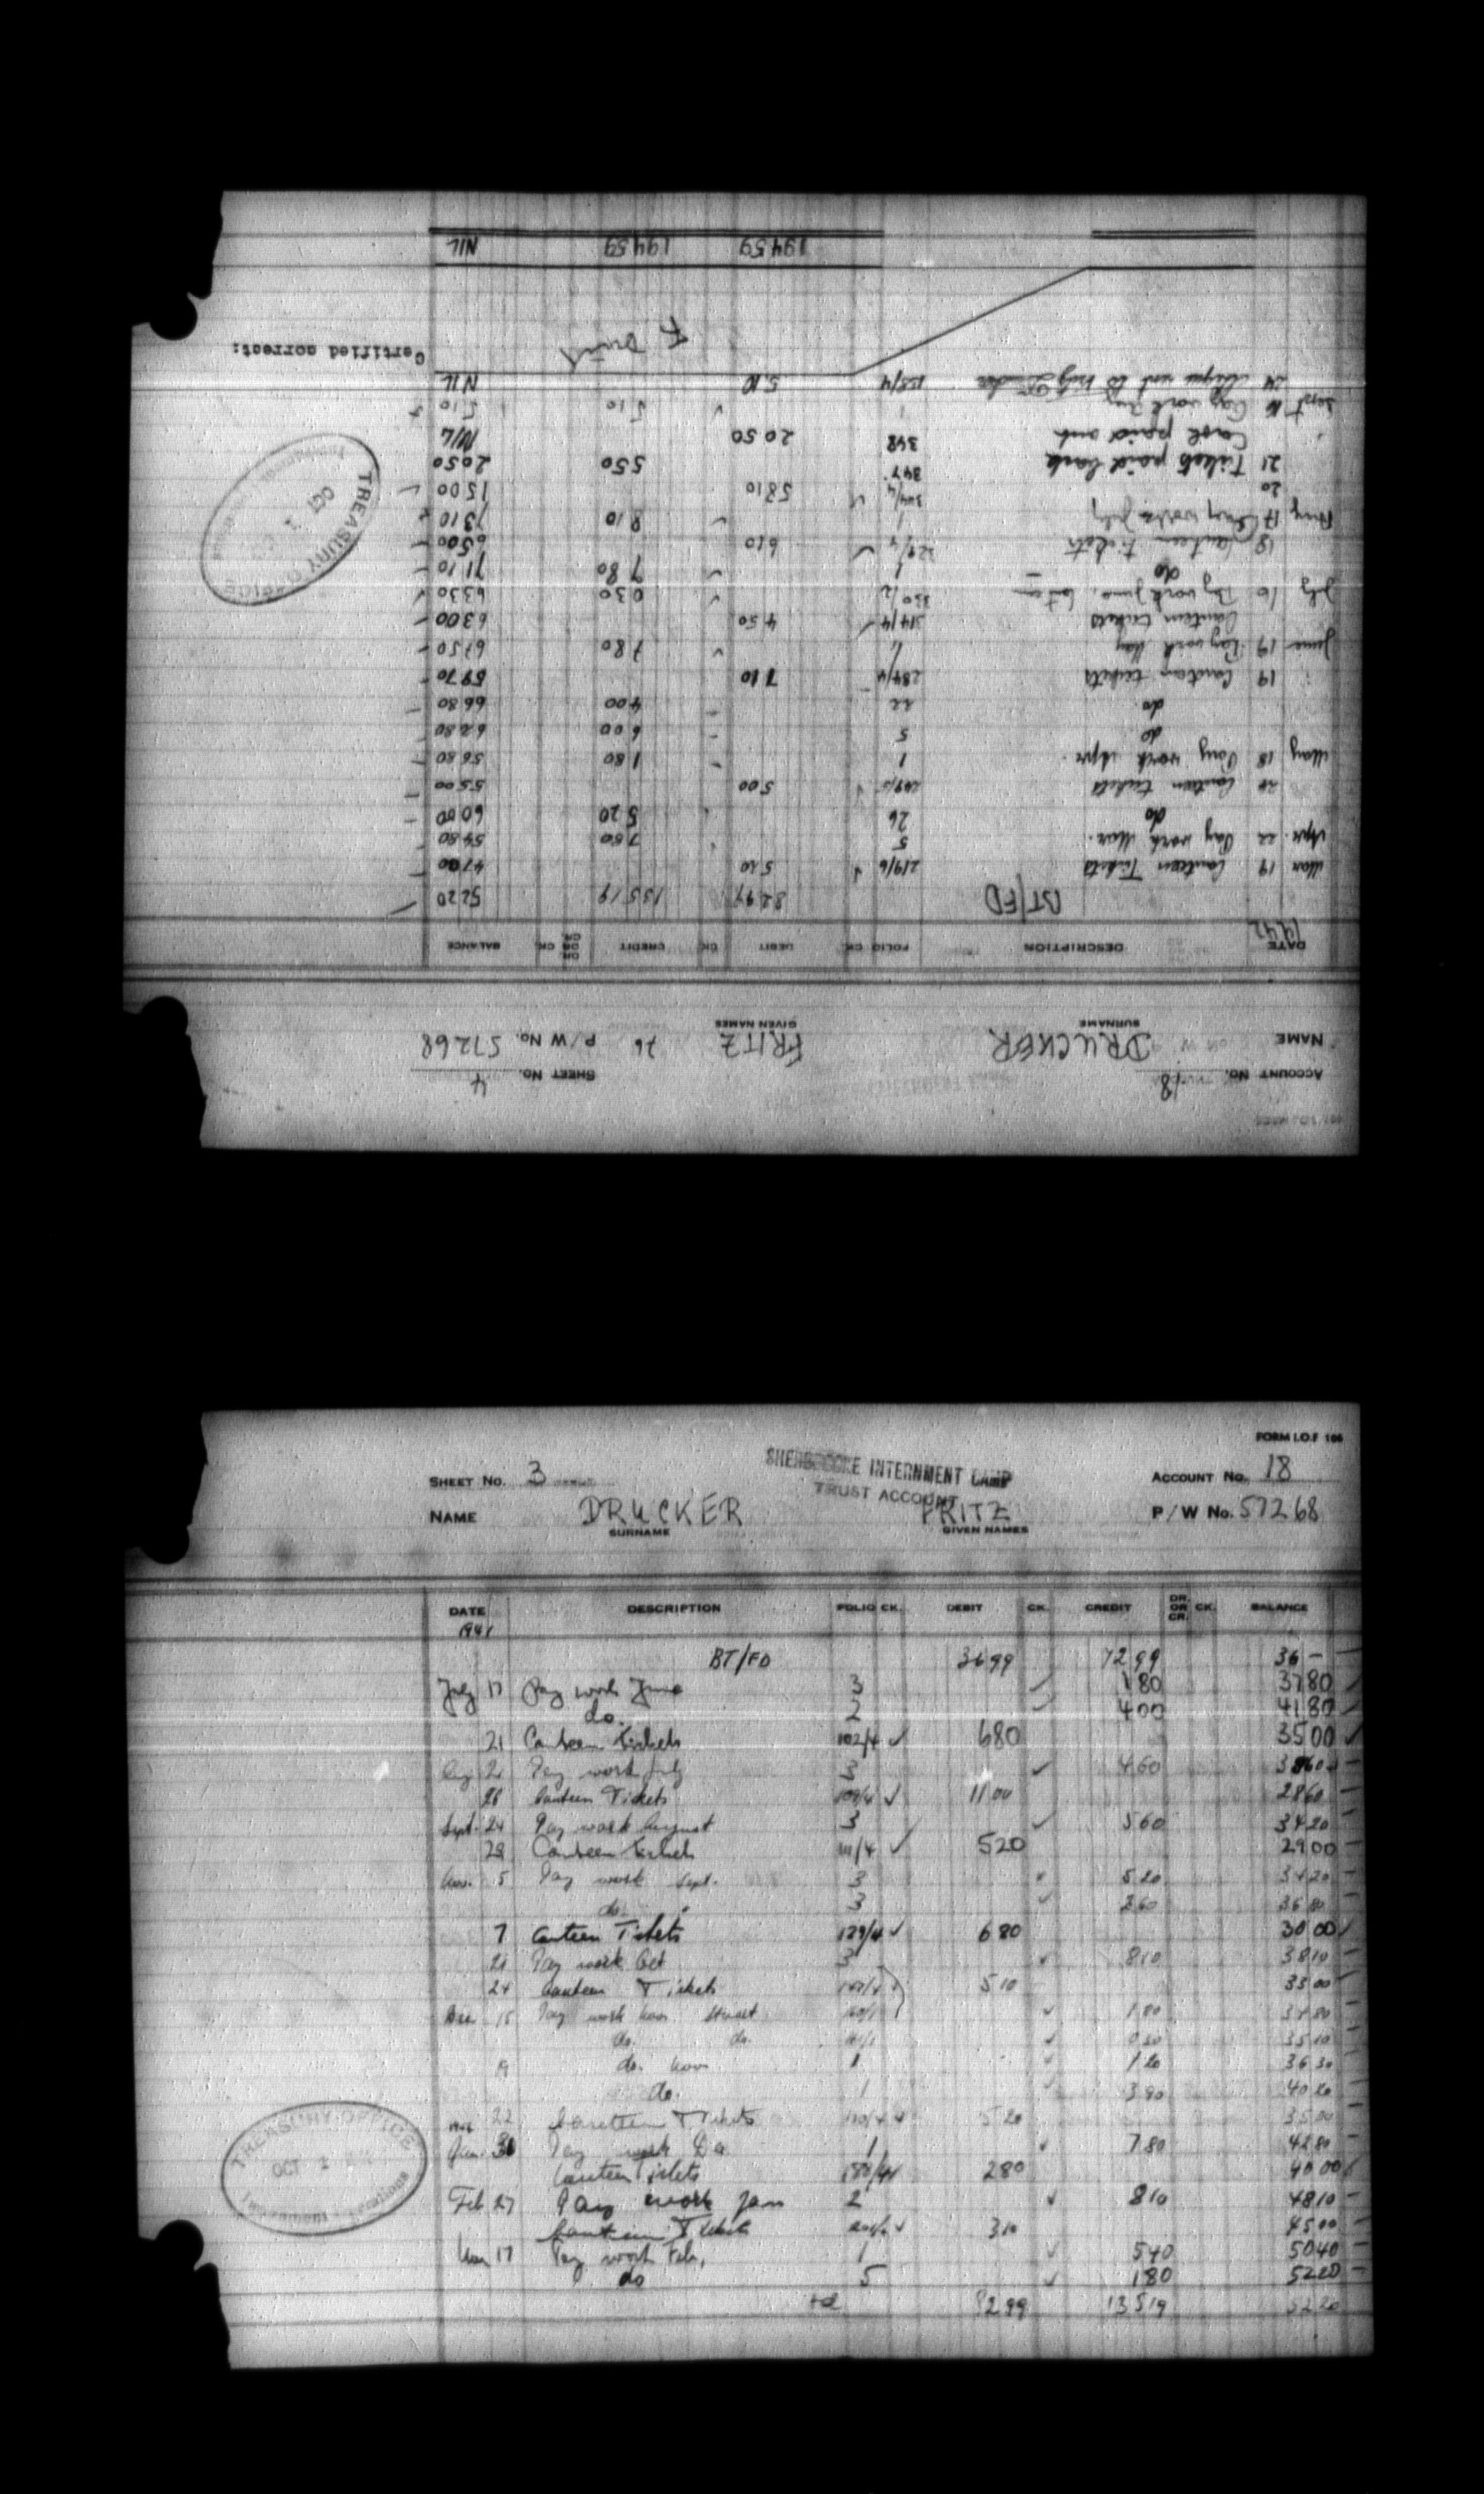 NIL 19459 19459
Certified correct:
24 NIL 5.10 158/4
Sept 16 Pay work Aug 5 10 5 10
Cash paid out 348 20 50 NIL
21 Tickets paid back 347 5 50 20 50
20 344/4 58 10 15 00
Aug 17 Pay work July 1 8 10 73 10
18 Canteen tickets 6 10 65 00
do 1 7 80 71 10
July 10 Pay work June 0 30 63 30
Canteen tickets 314/4 4 50 63 00
June 19 Pay work May 1 7 80 67 50
19 Canteen tickets 284/4 7 10 59 70
do. 22 4 00 66 80
do 5 6 00 62 80
May 18 Pay work Apr. 1 1 80 56 80
Canteen tickets 5 00 55 00
do 26 5 20 60 00
Apr. 22 Pay work Mar. 5 7 80 54 80
Mar 19 Canteen Tickets 219/6 5 20 47 00
BT/FD 82 99 135 19 52 20
1942
DATE DESCRIPTION FOLIO CK. DEBIT CK. CREDIT DR. OR CR. CK. BALANCE
NAME DRUCKER FRITZ 76 P/W No. 57268
SURNAME GIVEN NAMES
ACCOUNT No. 18 SHEET No. 4
TREASURY OFFICE
OCT
FORM I.O.F 106
SHEET No. 3 SHERBROOKE INTERNMENT CAMP ACCOUNT No. 18
TRUST ACCOUNT
NAME DRUCKER FRITZ P/W No. 57268
SURNAME GIVEN NAMES
DATE DESCRIPTION FOLIO CK. DEBIT CK. CREDIT DR. OR CR. CK. BALANCE
1941
BT/FD 36 99 72 99 36 -
July 17 Pay work June 3 1 80 37 80
do. 2 4 00 41 80
21 Canteen tickets 102/4 6 80 35 00
Aug 21 Pay work July 3 4 60 38 60
26 Canteen Tickets 109/4 11 00 28 60
Sept. 24 Pay work August 3 5 60 34 20
29 Canteen tickets 111/4 5 20 29 00
Nov. 5 Pay work Sept. 3 5 20 34 20
do. 3 2 60 36 80
7 Canteen Tickets 129/4 6 80 30 00
21 Pay work Oct 3 8 10 38 10
24 Canteen Tickets 5 10 33 00
Dec 15 Pay work Nov. 1 80 34 80
do. do. 0 30 35 10
19 do. Nov 1 1 20 36 30
do. 1 3 90 40 20
22 Canteen Tickets 5 20 35 00
1942
Jan. 30 Pay work Dec 1 7 80 42 80
Canteen Tickets 180/4 2 80 40 00
Feb 27 Pay work Jan 2 8 10 48 10
Canteen Tickets 3 10 45 00
Mar 17 Pay work Feb. 1 5 40 50 40
do 5 1 80 52 20
82 99 135 19 52 20
TREASURY OFFICE
OCT